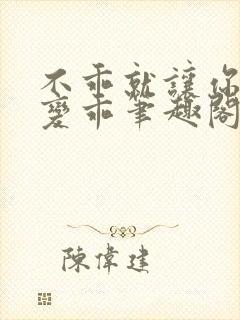 不乖就讓你
變乖筆趣閣
陳偉建